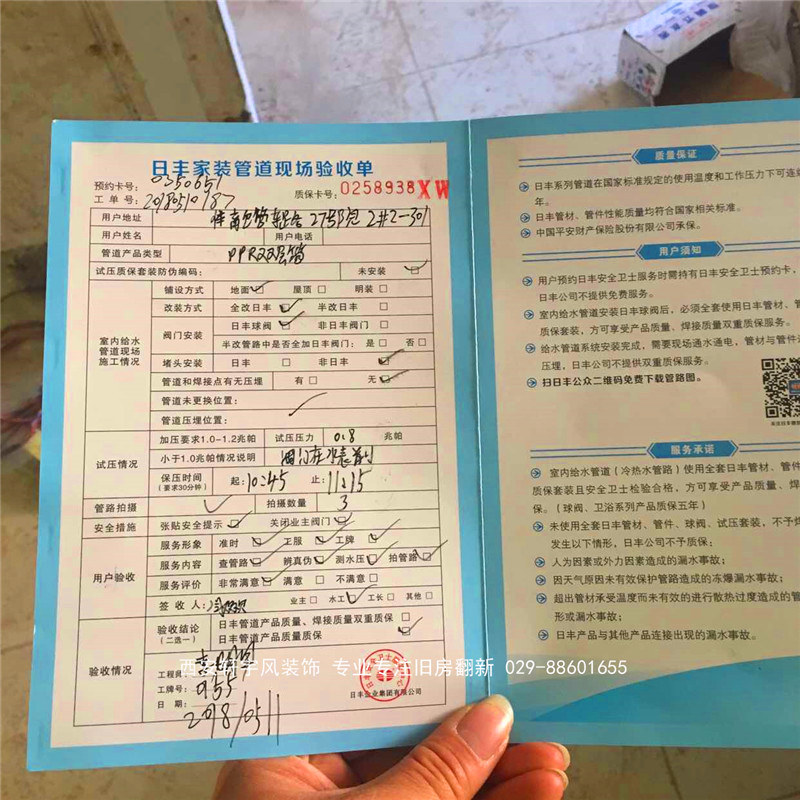 日丰家装管道现场验收单
预约卡号：0350651
工单号：20180510187
质保卡号：0258938XW
用户地址 27号院 2#2-301
用户姓名 用户电话
管道产品类型 PPR双层管
试压质保套装防伪编码： 未安装
室内给水管道现场施工情况
铺设方式 地面 屋顶 明装
改装方式 全改日丰 半改日丰
阀门安装 日丰球阀 非日丰阀门
半改管路中是否全加日丰阀门： 是 否
堵头安装 日丰 非日丰
管道和焊接点有无压埋 有 无
管道未更换位置：
管道压埋位置：
试压情况
加压要求1.0-1.2兆帕 试压压力 0.8 兆帕
小于1.0兆帕情况说明 阀门在水表前
保压时间 起：10:45 止：11:15
（要求30分钟）
管路拍摄 拍摄数量 3
安全措施 张贴安全提示 关闭业主阀门
用户验收
服务形象 准时 工服 工牌
服务内容 查管路 辨真伪 测水压 拍管路
服务评价 非常满意 满意 不满意
签收人： 业主 水工 工长 其他
验收情况
验收结论（二选一） 日丰管道产品质量、焊接质量双重质保
日丰管道产品质量质保
工程师
工牌号：0955
日期：2018/05/11
日丰企业集团有限公司
质量保证
日丰系列管道在国家标准规定的使用温度和工作压力下可连
年。
日丰管材、管件性能质量均符合国家相关标准。
中国平安财产保险股份有限公司承保。
用户须知
用户预约日丰安全卫士服务时需持有日丰安全卫士预约卡，
日丰公司不提供免费服务。
室内给水管道安装日丰球阀后，必须全套使用日丰管材、管
质保套装，方可享受产品质量、焊接质量双重质保服务。
给水管道系统安装完成，需要现场通水通电，管材与管件
压埋，日丰公司不提供双重质保服务。
扫日丰公众二维码免费下载管路图。
服务承诺
室内给水管道（冷热水管路）使用全套日丰管材、管件
质保套装且安全卫士检验合格，方可享受产品质量、焊
保。（球阀、卫浴系列产品质保五年）
未使用全套日丰管材、管件、球阀、试压套装，不予
发生以下情形，日丰公司不予质保：
人为因素或外力因素造成的漏水事故；
因天气原因未有效保护管路造成的冻爆漏水事故；
超出管材承受温度而未有效的进行散热过度造成的管
形或漏水事故；
日丰产品与其他产品连接出现的漏水事故。
西安筑宇风装饰 专业专注旧房翻新 029-88601655